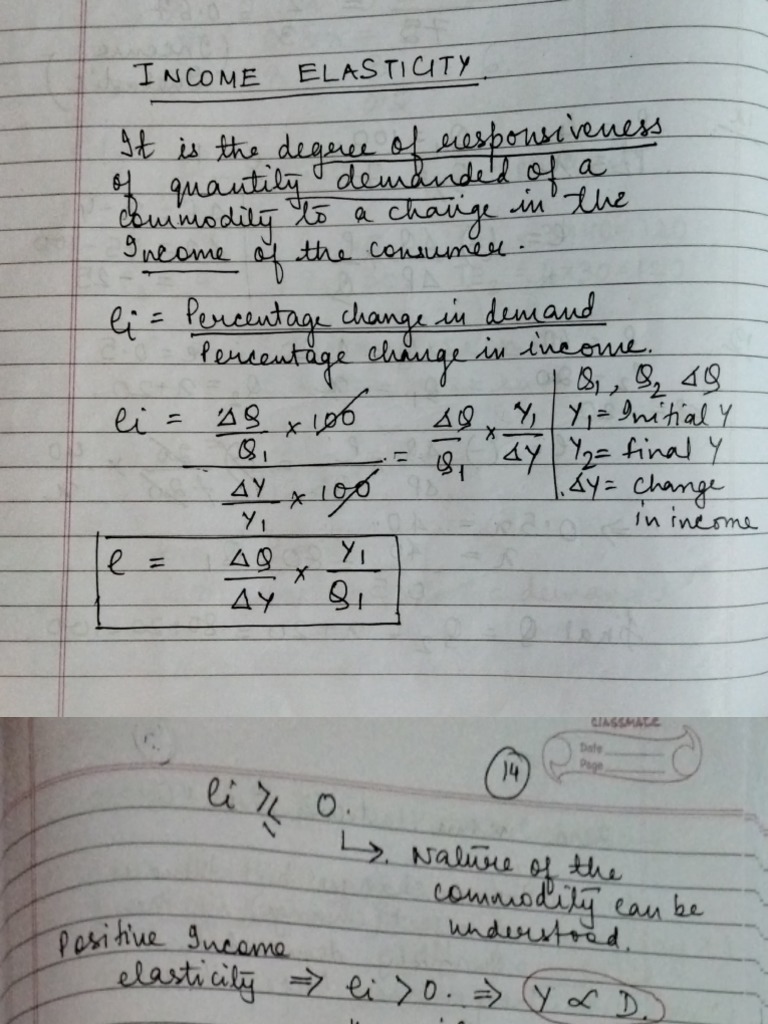 INCOME ELASTICITY.
It is the degree of responsiveness
of quantity demanded of a
commodity to a change in the
Income of the consumer.
ei = Percentage change in demand
Percentage change in income.
ei = ΔQ/Q1 × 100 / ΔY/Y1 × 100 = ΔQ/Q1 × Y1/ΔY
Q1, Q2 ΔQ
Y1 = Initial Y
Y2 = final Y
ΔY = change
in income
e = ΔQ/ΔY × Y1/Q1
classmate
Date
Page
14
ei ⋛ 0.
↳ Nature of the
commodity can be
understood.
Positive Income
elasticity ⇒ ei > 0. ⇒ Y ∝ D.